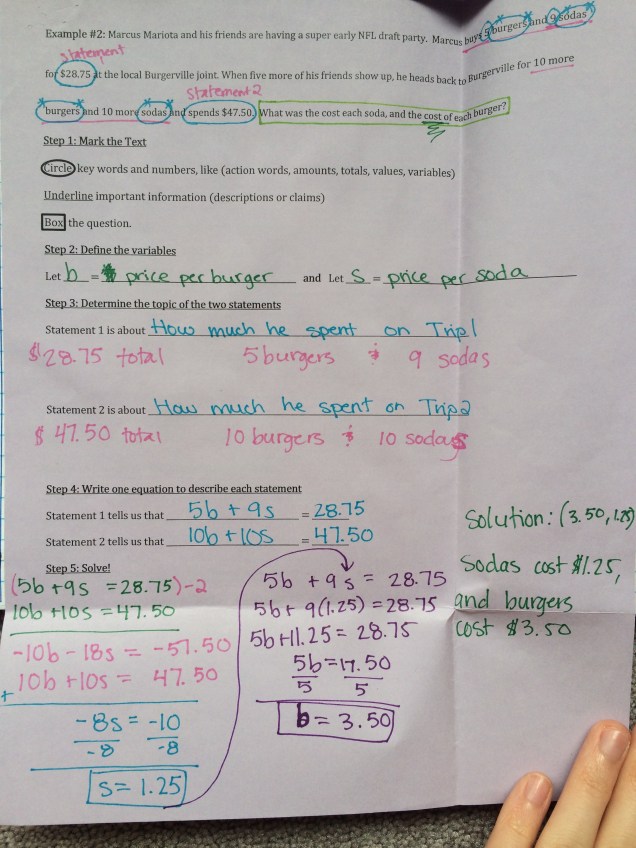 Example #2: Marcus Mariota and his friends are having a super early NFL draft party. Marcus buys 5 burgers and 9 sodas
statement
for $28.75 at the local Burgerville joint. When five more of his friends show up, he heads back to Burgerville for 10 more
Statement 2
burgers and 10 more sodas and spends $47.50. What was the cost each soda, and the cost of each burger?
Step 1: Mark the Text
Circle key words and numbers, like (action words, amounts, totals, values, variables)
Underline important information (descriptions or claims)
Box the question.
Step 2: Define the variables
Let b = price per burger and Let S = price per soda
Step 3: Determine the topic of the two statements
Statement 1 is about How much he spent on Trip 1
$28.75 total 5 burgers & 9 sodas
Statement 2 is about How much he spent on Trip 2
$47.50 total 10 burgers & 10 sodas
Step 4: Write one equation to describe each statement
Statement 1 tells us that 5b + 9s = 28.75
Statement 2 tells us that 10b + 10s = 47.50
Solution: (3.50, 1.25)
Sodas cost $1.25,
and burgers
cost $3.50
Step 5: Solve!
(5b + 9s = 28.75) -2
10b + 10s = 47.50
-10b - 18s = -57.50
+ 10b + 10s = 47.50
-8s = -10
-8 -8
s = 1.25
5b + 9s = 28.75
5b + 9(1.25) = 28.75
5b + 11.25 = 28.75
5b = 17.50
5 5
b = 3.50